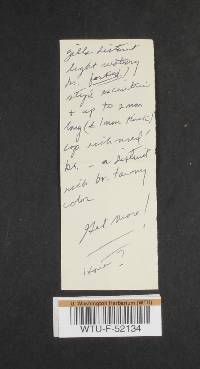 gills distinct
light watery
br. (
stipe excentric
+ up to 2 mm
long (& 1 mm thick)
cap rich red
br. - a distinct
rich br. tawny
color
Get more!
How?
U. Washington Herbarium (WTU)
WTU-F-52134